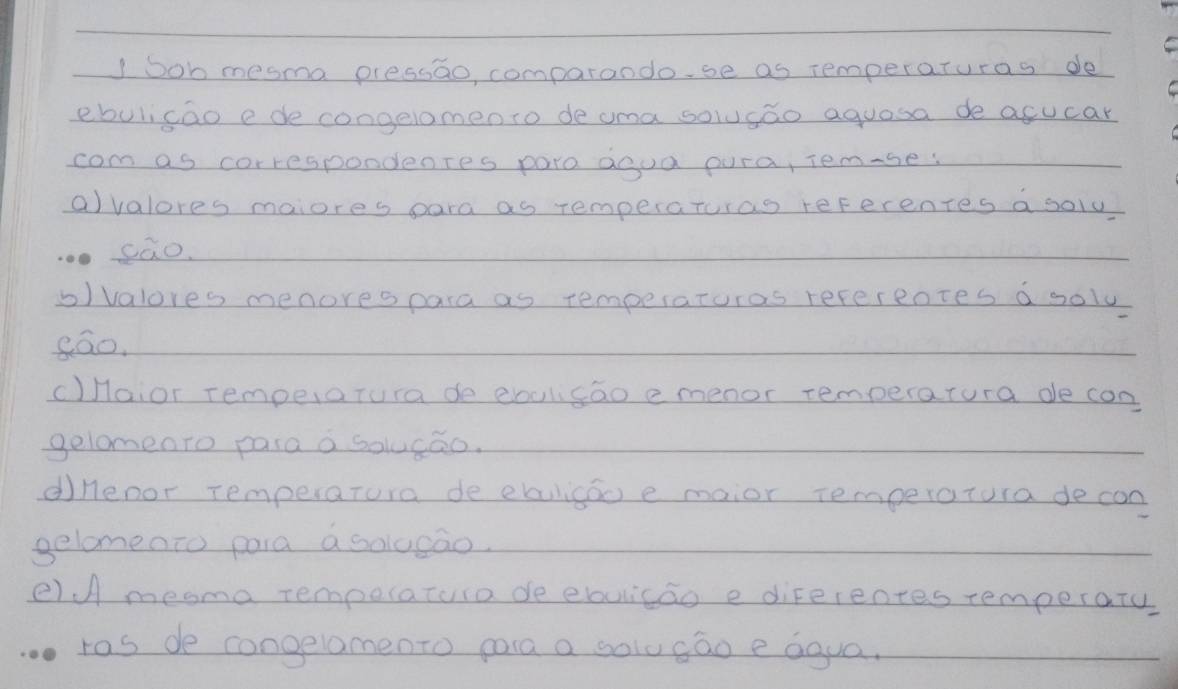 1 Sob mesma pressão, comparando-se as temperaturas de
ebulição e de congelamento de uma solução aquosa de açucar
com as correspondentes para água pura, tem-se:
a) valores maiores para as temperaturas referentes á solu
ção.
b) valores menores para as temperaturas referentes á solu
ção.
c) Maior temperatura de ebulição e menor temperatura de con
gelamento para á solução.
d) Menor temperatura de ebulição e maior temperatura de con
gelamento para á solução.
e) A mesma temperatura de ebulição e diferentes temperatu
ras de congelamento para a solução e água.